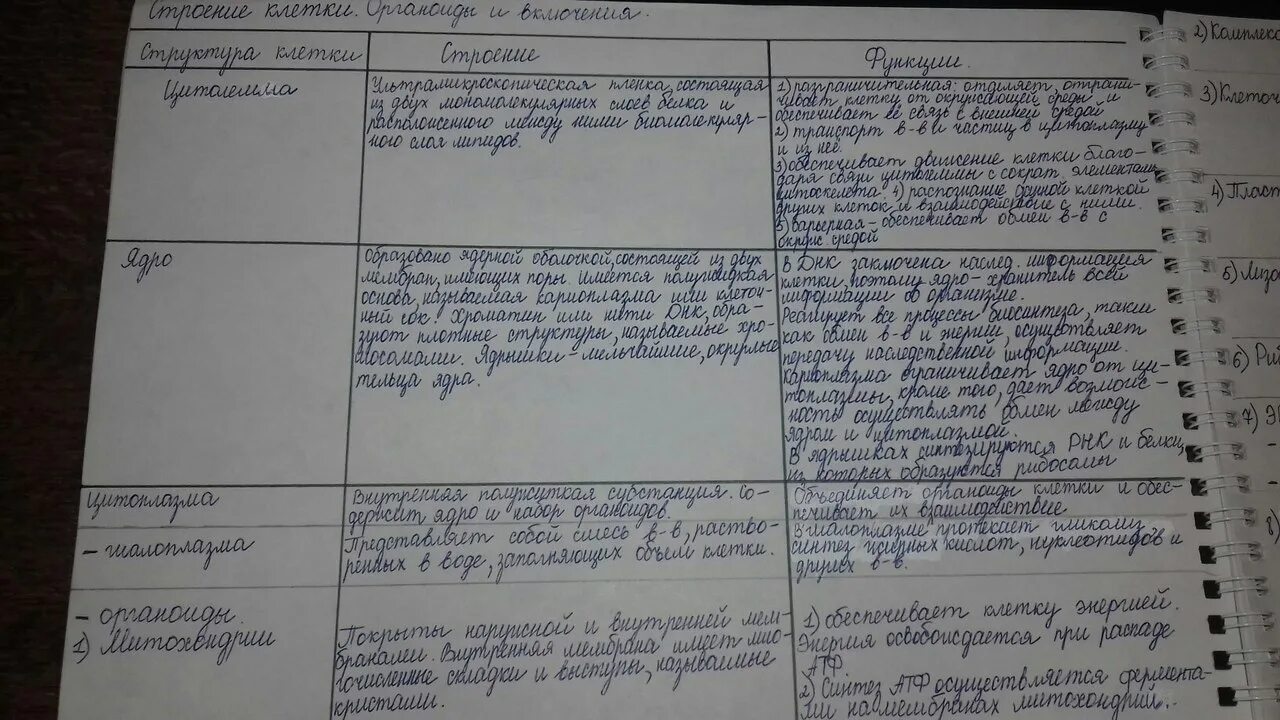 Строение клетки. Органоиды и включения.
Структура клетки
Строение
Функции.
Цитолемма
Ультрамикроскопическая пленка, состоящая
из двух мономолекулярных слоев белка и
расположенного между ними биомолекуляр-
ного слоя липидов.
1) разграничительная: отделяет, отграни-
чивает клетку от окружающей среды и
обеспечивает ее связь с внешней средой
2) транспорт в-в и частиц в цитоплазму
и из нее.
3) обеспечивает движение клетки благо-
даря связи цитолеммы с сократ. элементами
цитоскелета 4) распознание данной клеткой
других клеток и взаимодействие с ними.
5) барьерная - обеспечивает обмен в-в с
окруж. средой
Ядро
Образовано ядерной оболочкой, состоящей из двух
мембран, имеющих поры. Имеется полужидкая
основа, называемая кариоплазма или клеточ-
ный сок. Хроматин или нити ДНК, обра-
зуют плотные структуры, называемые хро-
мосомами. Ядрышки - мельчайшие, округлые
тельца ядра.
В ДНК заключена наслед. информация
клетки, поэтому ядро - хранитель всей
информации об организме.
Реагирует все процессы биосинтеза, такие
как обмен в-в и энергии, осуществляет
передачу наследственной информации.
Кариоплазма ограничивает ядро от ци-
топлазмы, кроме того, дает возмож-
ность осуществлять обмен между
ядром и цитоплазмой.
В ядрышках синтезируются РНК и белки,
из которых образуются рибосомы
Цитоплазма
Внутренняя полужуткая субстанция. Со-
держит ядро и набор органоидов.
Объединяет органоиды клетки и обес-
печивает их взаимодействие
- гиалоплазма
Представляет собой смесь в-в, раство-
ренных в воде, заполняющих объем клетки.
В гиалоплазме протекает гликолиз,
синтез жирных кислот, нуклеотидов и
других в-в.
- органоиды.
1) Митохондрии
Покрыты наружной и внутренней мем-
бранами. Внутренняя мембрана имеет мно-
гочисленные складки и выступы, называемые
кристами.
1) обеспечивает клетку энергией.
Энергия освобождается при распаде
АТФ.
2) Синтез АТФ осуществляется фермента-
ми на мембранах митохондрий.
2) Комплекс
3) Клеточ
4) Пласт
5) Лизо
6) Риб
7)
8)